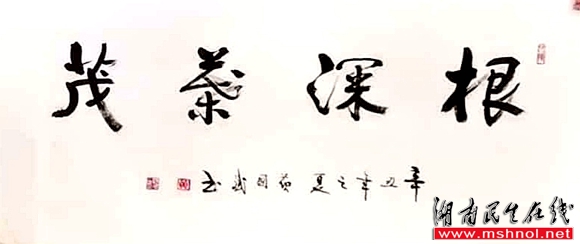 根深葉茂
辛丑年之夏
湖南民生在线
www.mshnol.net